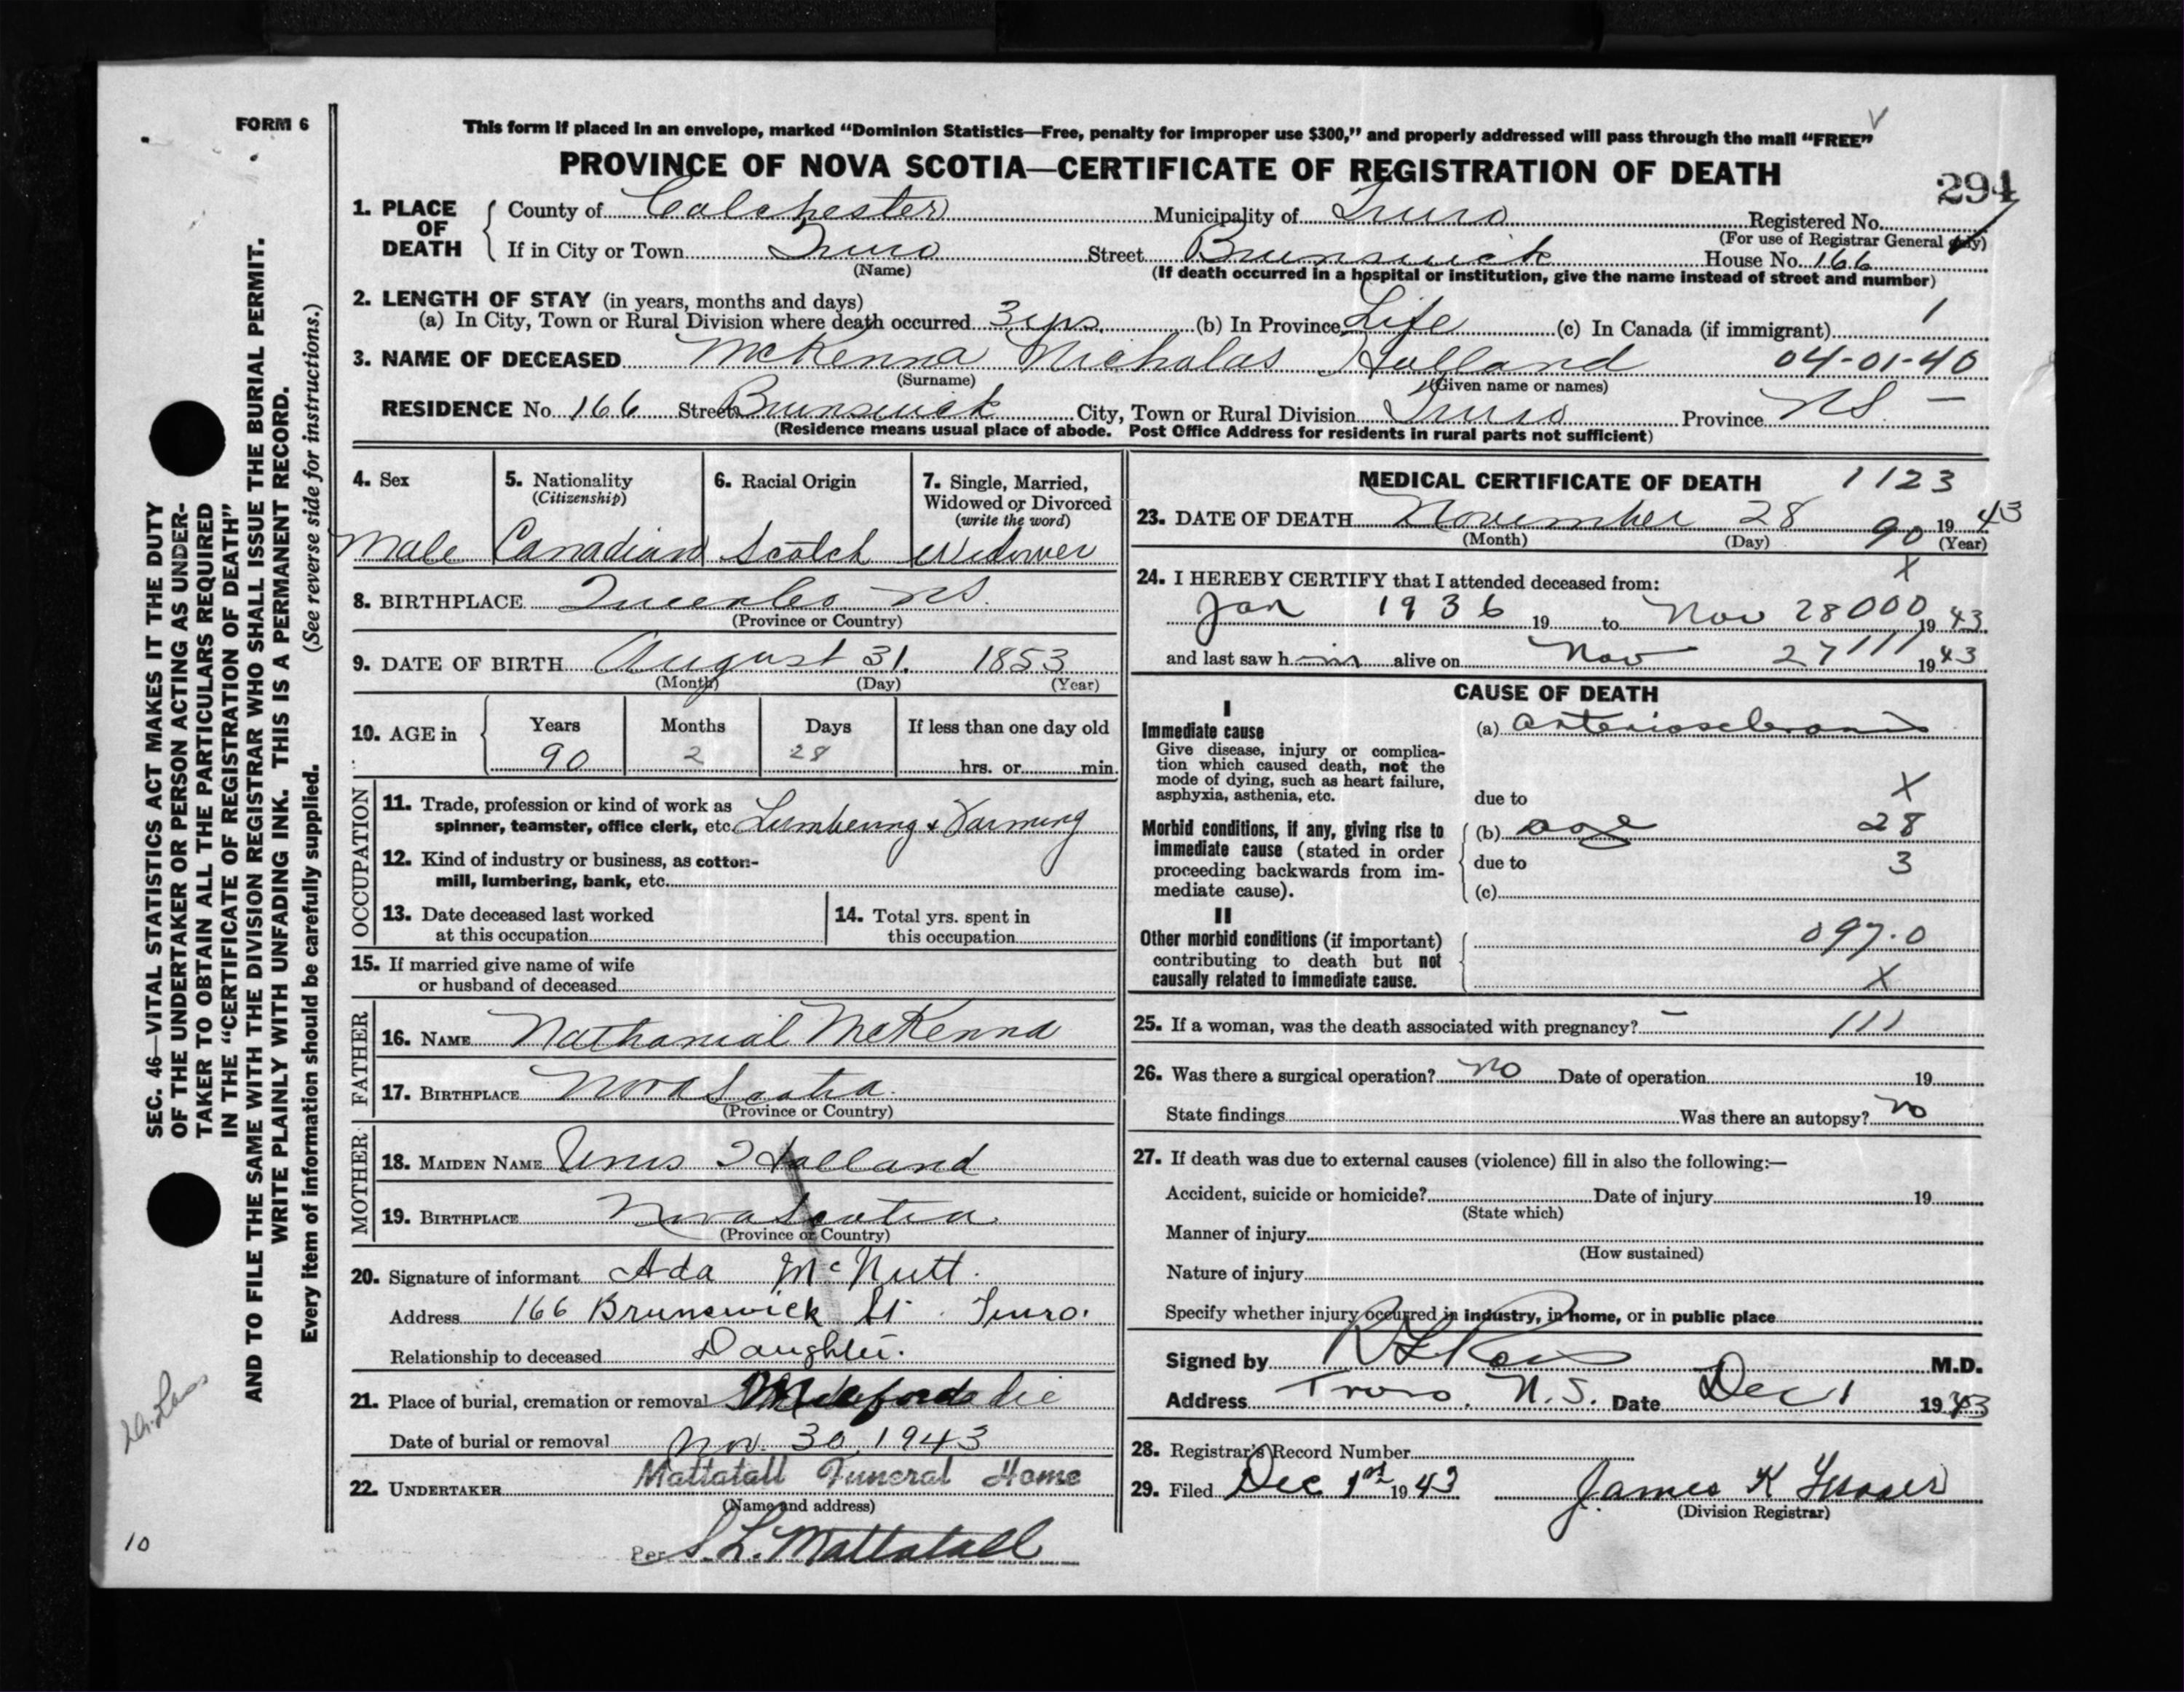 FORM 6
This form if placed in an envelope, marked “Dominion Statistics—Free, penalty for improper use $300,” and properly addressed will pass through the mail “FREE”
PROVINCE OF NOVA SCOTIA—CERTIFICATE OF REGISTRATION OF DEATH
294
1. PLACE OF DEATH
County of Colchester Municipality of Truro Registered No.
(For use of Registrar General only)
If in City or Town Truro Street Brunswick House No. 166
(Name) (If death occurred in a hospital or institution, give the name instead of street and number)
2. LENGTH OF STAY (in years, months and days)
(a) In City, Town or Rural Division where death occurred 3 yrs. (b) In Province Life (c) In Canada (if immigrant) 1
3. NAME OF DECEASED McKenna Nicholas Holland 04-01-40
(Surname) (Given name or names)
RESIDENCE No. 166 Street Brunswick City, Town or Rural Division Truro Province NS. —
(Residence means usual place of abode. Post Office Address for residents in rural parts not sufficient)
4. Sex
Male
5. Nationality
(Citizenship)
Canadian
6. Racial Origin
Scotch
7. Single, Married,
Widowed or Divorced
(write the word)
Widower
8. BIRTHPLACE NS.
(Province or Country)
9. DATE OF BIRTH August 31. 1853
(Month) (Day) (Year)
10. AGE in
Years Months Days If less than one day old
90 2 28 hrs. or min.
OCCUPATION
11. Trade, profession or kind of work as
spinner, teamster, office clerk, etc. Lumbering & Farming
12. Kind of industry or business, as cotton-
mill, lumbering, bank, etc.
13. Date deceased last worked
at this occupation
14. Total yrs. spent in
this occupation
15. If married give name of wife
or husband of deceased
FATHER
16. NAME Nathanial McKenna
17. BIRTHPLACE Nova Scotia.
(Province or Country)
MOTHER
18. MAIDEN NAME Holland
19. BIRTHPLACE Nova Scotia.
(Province or Country)
20. Signature of informant Ada McNutt.
Address 166 Brunswick St. Truro.
Relationship to deceased Daughter.
21. Place of burial, cremation or removal
Date of burial or removal Nov. 30, 1943
22. UNDERTAKER Mattatall Funeral Home
(Name and address)
Per S.L. Mattatall
MEDICAL CERTIFICATE OF DEATH 1123
23. DATE OF DEATH November 28 90 19 43
(Month) (Day) (Year)
X
24. I HEREBY CERTIFY that I attended deceased from:
Jan 1936 19 to Nov 28 000 19 43
and last saw h im alive on Nov 27 111 19 43
CAUSE OF DEATH
I
Immediate cause
Give disease, injury or complica-
tion which caused death, not the
mode of dying, such as heart failure,
asphyxia, asthenia, etc.
(a) arteriosclerosis
due to X
Morbid conditions, if any, giving rise to
immediate cause (stated in order
proceeding backwards from im-
mediate cause).
(b) age 28
due to 3
(c)
II
Other morbid conditions (if important)
contributing to death but not
causally related to immediate cause.
097.0
X
25. If a woman, was the death associated with pregnancy? — 111
26. Was there a surgical operation? no Date of operation 19
State findings Was there an autopsy? no
27. If death was due to external causes (violence) fill in also the following:—
Accident, suicide or homicide? Date of injury 19
(State which)
Manner of injury
(How sustained)
Nature of injury
Specify whether injury occurred in industry, in home, or in public place
Signed by M.D.
Address Truro, N.S. Date Dec 1 1943
28. Registrar's Record Number
29. Filed Dec 1st 1943 James K
(Division Registrar)
SEC. 46—VITAL STATISTICS ACT MAKES IT THE DUTY
OF THE UNDERTAKER OR PERSON ACTING AS UNDER-
TAKER TO OBTAIN ALL THE PARTICULARS REQUIRED
IN THE “CERTIFICATE OF REGISTRATION OF DEATH”
AND TO FILE THE SAME WITH THE DIVISION REGISTRAR WHO SHALL ISSUE THE BURIAL PERMIT.
WRITE PLAINLY WITH UNFADING INK. THIS IS A PERMANENT RECORD.
Every item of information should be carefully supplied. (See reverse side for instructions.)
10